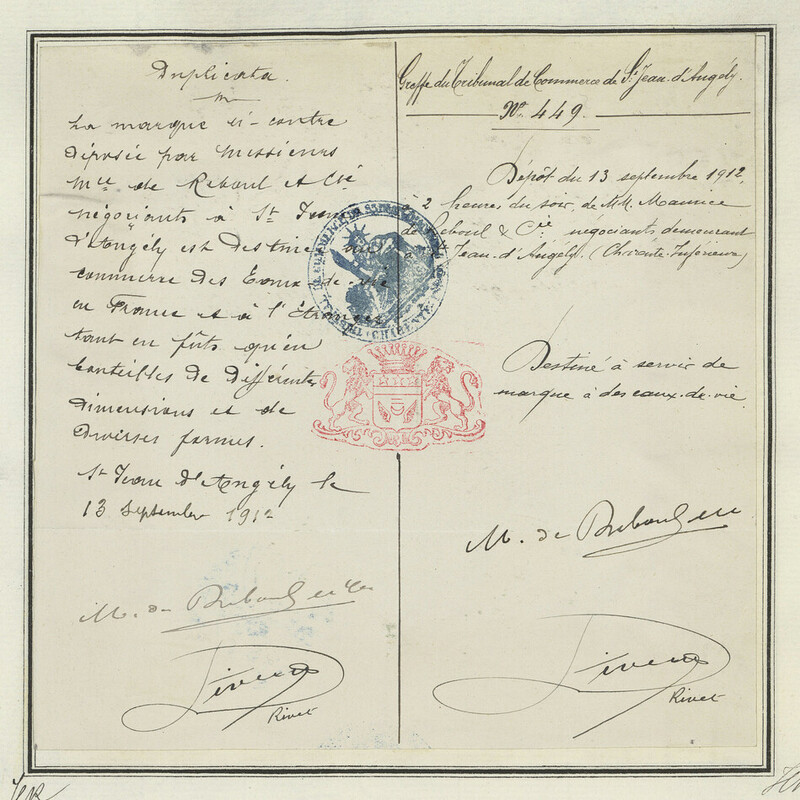 Duplicata.
La marque ci-contre
déposée par Messieurs
Mce de Reboul et Cie
négociants à St Jean
d'Angély est destinée au
commerce des Eaux-de-vie
en France et à l'Etranger
tant en fûts qu'en
bouteilles de différentes
dimensions et de
diverses formes.
St Jean d'Angély le
13 Septembre 1912
M. de Reboul et Cie
Rivet
Greffe du Tribunal de Commerce de St Jean-d'Angély.
No. 449.
Dépôt du 13 septembre 1912,
à 2 heures du soir, de MM. Maurice
de Reboul & Cie négociants demeurant
à St Jean-d'Angély. (Charente-Inférieure)
Destiné à servir de
marque à des eaux-de-vie.
M. de Reboul et Cie
Rivet